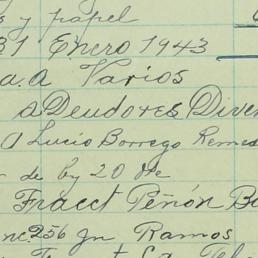 y papel
31 Enero 1943
a.a Varios
a Deudores Diver
a Lucio Borrego Reme
de by 20 de
Fracct Peñón Ba
nc. 256 Jn Ramos